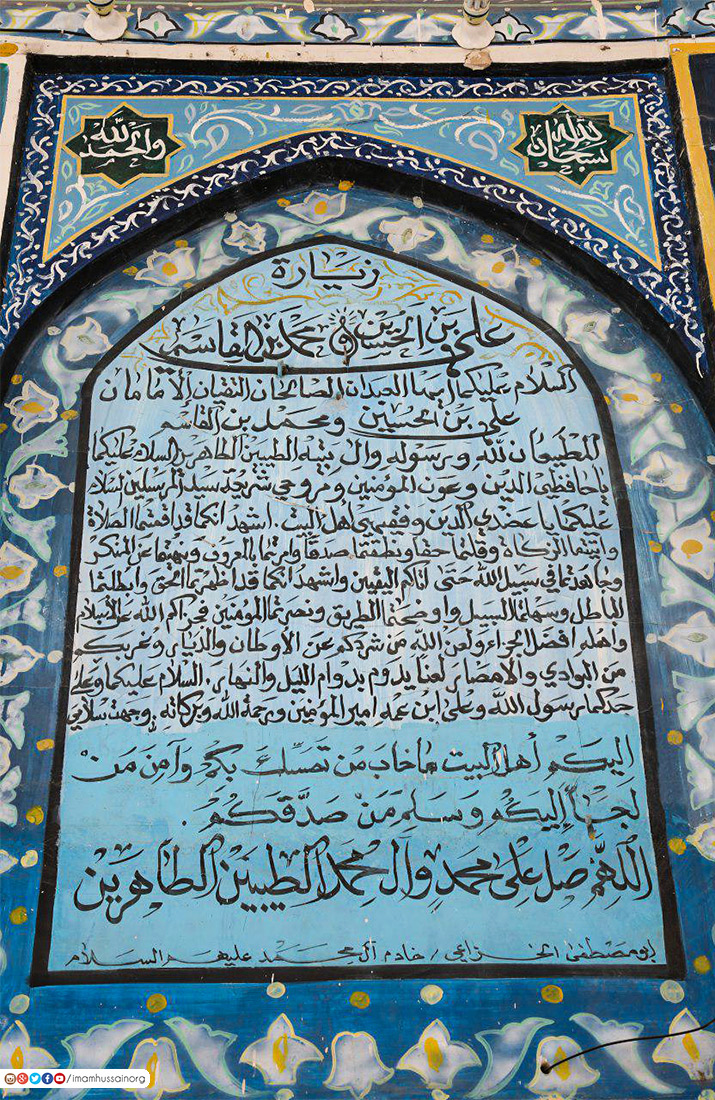 سبحان الله
والحمد لله
زيارة
علي بن الحسين و محمد بن القاسم
السلام عليكما ايها العبدان الصالحان التقيان الامامان
علي بن الحسين ومحمد بن القاسم
المطيعان لله ورسوله وال بيته الطيبين الطاهرين السلام عليكما
ياحافظي الدين وعون المؤمنين ومروجي شريعة سيد المرسلين السلام
عليكما يا عضدي الدين وفقيهي اهل البيت . اشهد انكما قد اقمتما الصلاة
واتيتما الزكاة وقلتما حقا ونطقتما صدقا وامرتما بالمعروف ونهيتما عن المنكر
وجاهدتما في سبيل الله حتى اتاكم اليقين واشهد انكما قد اظهرتما الحق وابطلتما
الباطل وسهلتما السبيل واوضحتما الطريق ونصرتما المؤمنين فجزاكم الله عن الاسلام
واهله افضل الجزاء ولعن الله من شردكم عن الاوطان والديار وغربكم
من البوادي والامصار لعنا يدوم بدوام الليل والنهار . السلام عليكما وعلى
جدكما رسول الله وعلى ابن عمه امير المؤمنين ورحمة الله وبركاته وجهت سلامي
اليكم أهل البيت ماخاب من تمسك بكم وآمن من
لجأ إليكم وسلم من صدقكم .
اللهم صل على محمد وآل محمد الطيبين الطاهرين
ابو مصطفى الخزاعي / خادم آل محمد عليهم السلام
/imamhussainorg